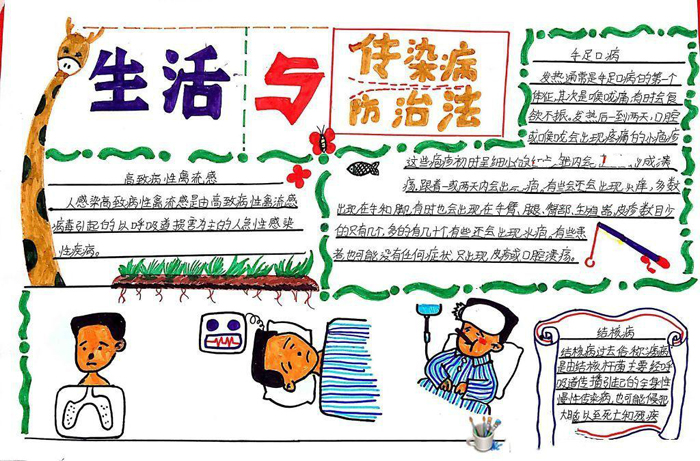 生活
与
传染病
防治法
手足口病
发热通常是手足口病的第一个
体征,其次是喉咙痛,有时会食
欲不振。发热后一到两天,口腔
或喉咙会出现疼痛的小病疮
这些病疹初时呈细小的
成溃
疡,跟着一或两天内会出 病。有些会不会出现 痒,多数
出现在手和脚,有时也会出现在手臂、腿、臀部、生殖器,皮疹数目少
的只有几个,多的有几十个,有些还会出现水病,有些患
者也可能没有任何症状,只出现皮疹或口腔溃疡。
高致病性禽流感
人感染高致病性禽流感是由高致病性禽流感
病毒引起的以呼吸道损害为主的人急性感染
性疾病。
结核病
结核病过去俗称痨病
是由结核杆菌主要经呼
吸道传播引起的全身性
慢性传染病,也可能侵犯
大脑以至死亡和残疾